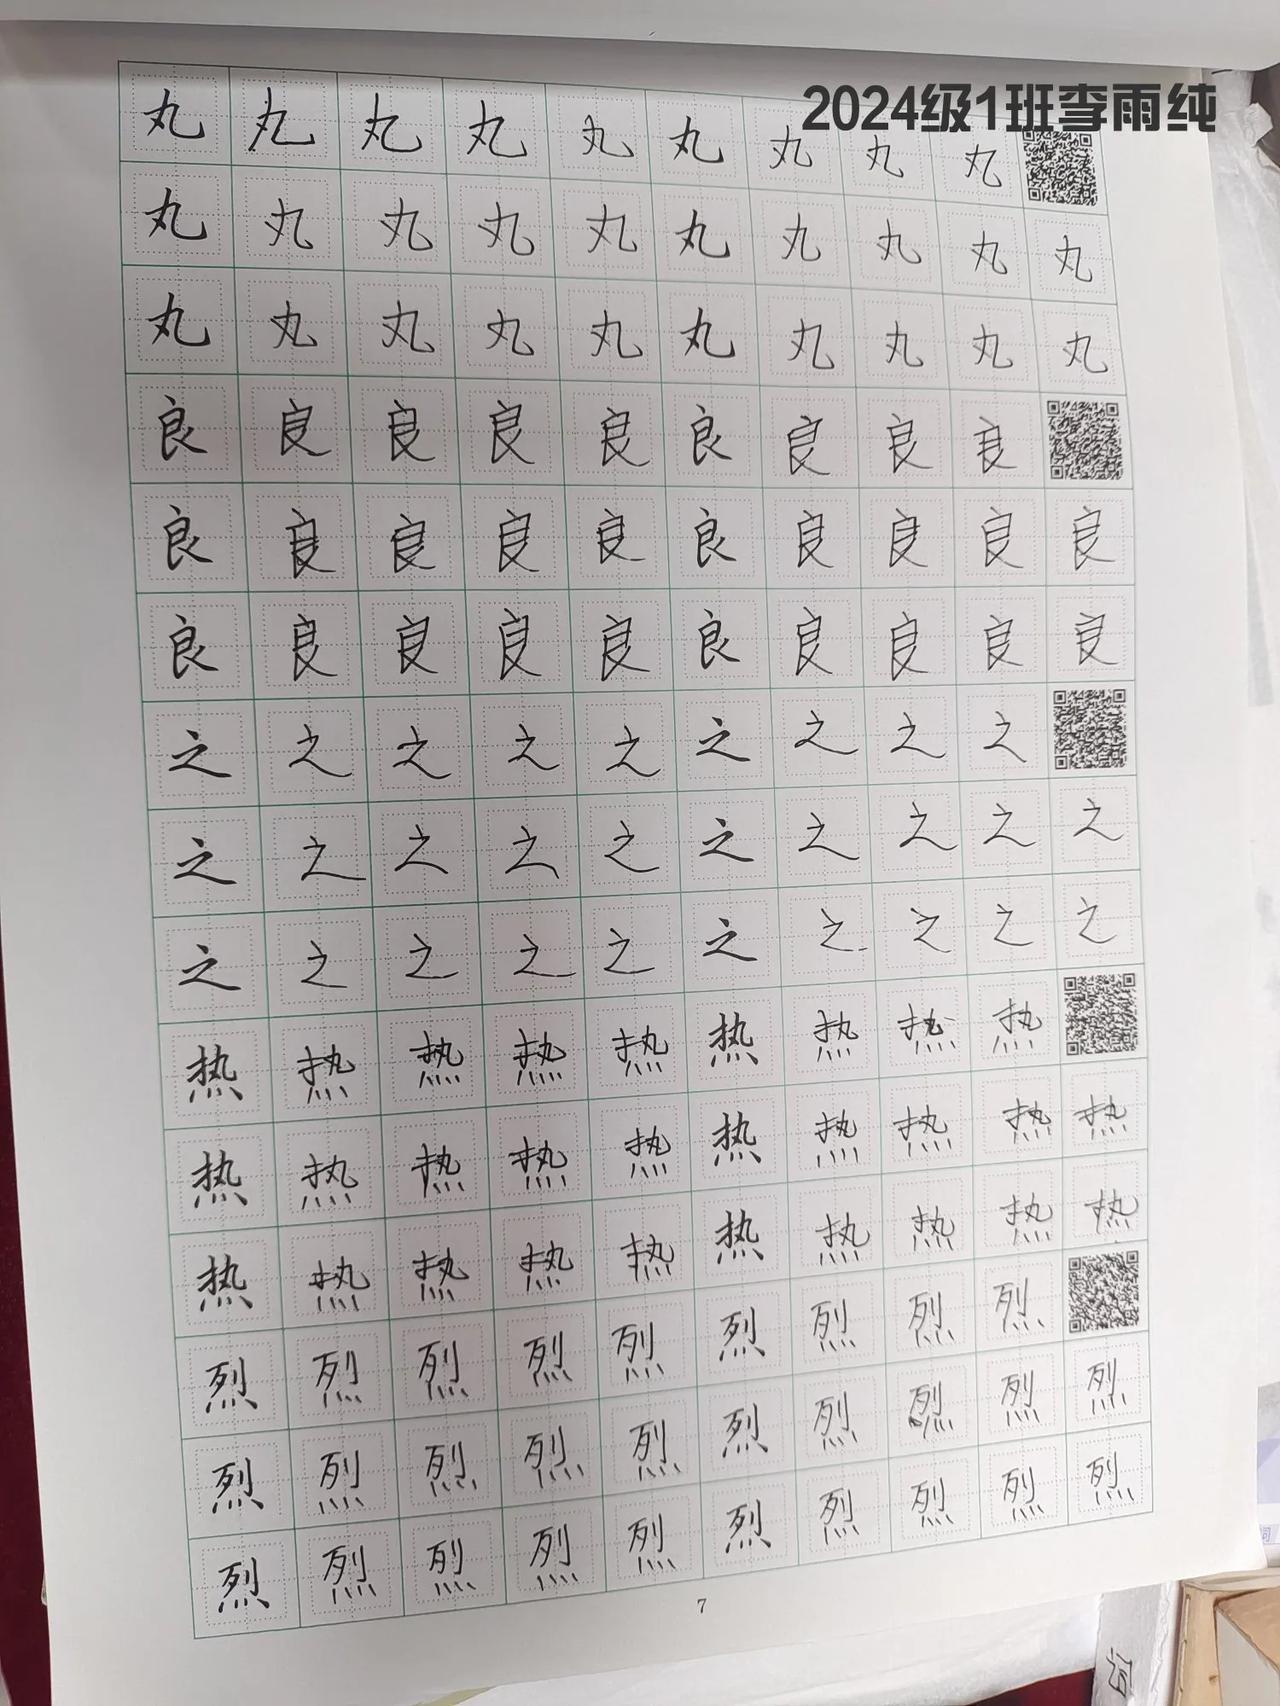 2024级1班李雨纯
丸丸丸丸丸丸丸丸丸
丸丸丸丸丸丸丸丸丸丸
丸丸丸丸丸丸丸丸丸丸
良良良良良良良良良
良良良良良良良良良良
良良良良良良良良良良
之之之之之之之之之
之之之之之之之之之之
之之之之之之之之之之
热热热热热热热热热
热热热热热热热热热热
热热热热热热热热热热
烈烈烈烈烈烈烈烈烈
烈烈烈烈烈烈烈烈烈烈
烈烈烈烈烈烈烈烈烈烈
7
词